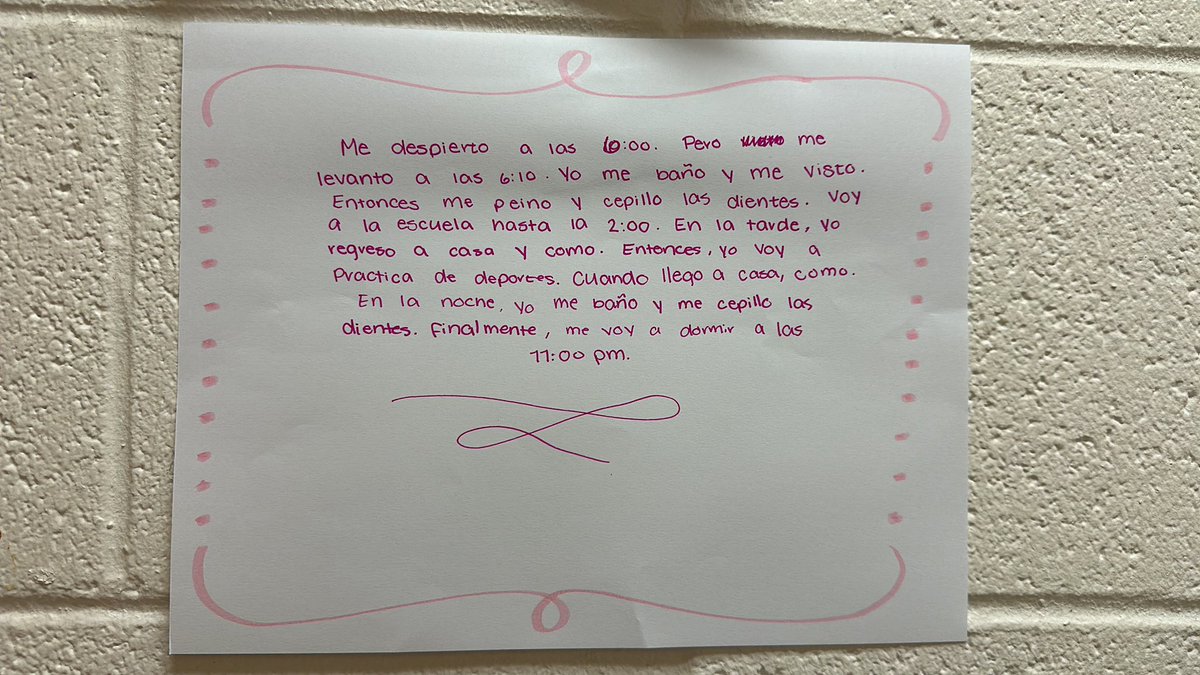 Me despierto a las 6:00. Pero me
levanto a las 6:10. Yo me baño y me visto.
Entonces me peino y cepillo las dientes. Voy
a la escuela hasta la 2:00. En la tarde, yo
regreso a casa y como. Entonces, yo voy a
Practica de deportes. Cuando llego a casa, como.
En la noche, yo me baño y me cepillo las
dientes. Finalmente, me voy a dormir a las
11:00 pm.